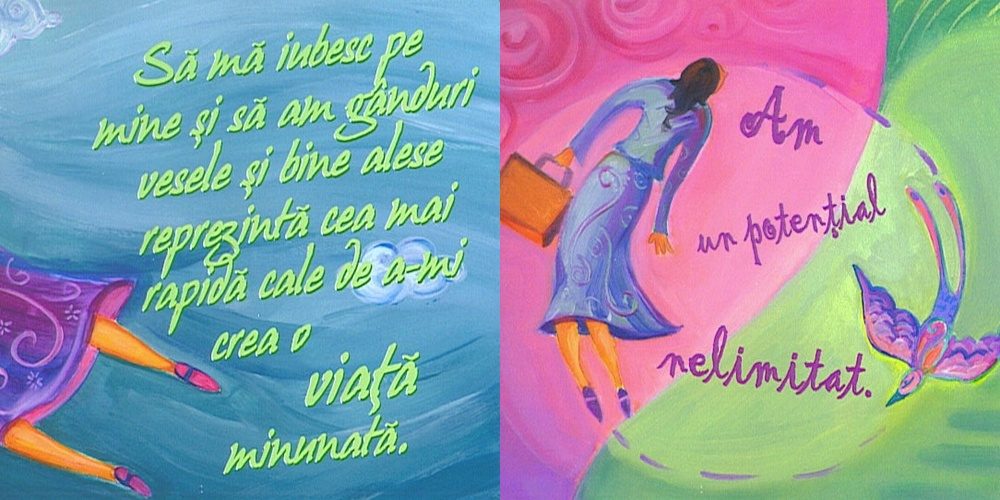 Să mă iubesc pe
mine și să am gânduri
vesele și bine alese
reprezintă cea mai
rapidă cale de a-mi
crea o
viață
minunată.
Am
un potențial
nelimitat.